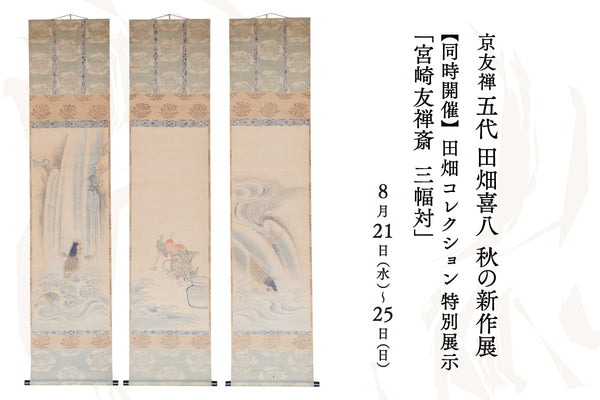 京友禅 五代 田畑喜八 秋の新作展
【同時開催】田畑コレクション 特別展示
「宮崎友禅斎 三幅対」
8月21日(水)~25日(日)